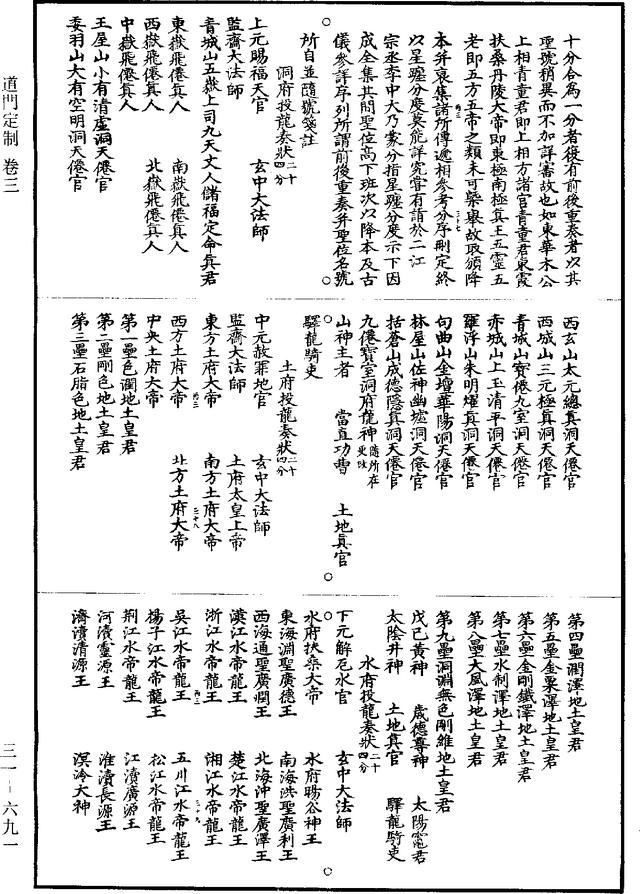 十分合為一分者復有前後重奏者以其
聖號稍異而不加詳審故也如東華木公
上相青童君即上相方諸宮青童君東霞
扶桑丹陵大帝即東極南極真王五靈五
老即五方五帝之類未可槩舉故取頒降
本并裒集諸所傳遞相參考分序刪定終
以星躔分度莫能詳究嘗有請於二江
宗丞李中大乃蒙分指星躔分度示下因
成全集其間聖位高下班次以降本及古
儀參詳序列所謂前後重奏并聖位名號
所自並隨號箋註
洞府投龍奏狀二十四分
上元賜福天官 玄中大法師
監齋大法師
青城山五嶽上司九天丈人儲福定命真君
東嶽飛僊真人 南嶽飛僊真人
西嶽飛僊真人 北嶽飛僊真人
中嶽飛僊真人
王屋山小有清虛洞天僊官
委羽山大有空明洞天僊官
西玄山太元總真洞天僊官
西城山三元極真洞天僊官
青城山寶僊九室洞天僊官
赤城山上玉清平洞天僊官
羅浮山朱明燿真洞天僊官
句曲山金壇華陽洞天僊官
林屋山佐神幽墟洞天僊官
括蒼山成德隱真洞天僊官
九僊寶室洞府龍神隨所在更改
山神主者 當直功曹 土地真官
驛龍騎吏
土府投龍奏狀二十四分
中元赦罪地官 玄中大法師
監齋大法師 土府太皇上帝
東方土府大帝 南方土府大帝
西方土府大帝 北方土府大帝
中央土府大帝
第一壘色潤地土皇君
第二壘剛色地土皇君
第三壘石脂色地土皇君
第四壘潤澤地土皇君
第五壘金粟澤地土皇君
第六壘金剛鐵澤地土皇君
第七壘水制澤地土皇君
第八壘大風澤地土皇君
第九壘洞淵無色剛維地土皇君
戊己黃神 歲德尊神 太陽竈君
太陰井神 土地真官 驛龍騎吏
水府投龍奏狀二十四分
下元解厄水官 玄中大法師
水府扶桑大帝 水府暘谷神王
東海淵聖廣德王 南海洪聖廣利王
西海通聖廣潤王 北海沖聖廣澤王
漢江水帝龍王 楚江水帝龍王
浙江水帝龍王 湘江水帝龍王
吳江水帝龍王 五川江水帝龍王
楊子江水帝龍王 松江水帝龍王
荊江水帝龍王 江瀆廣源王
河瀆靈源王 淮瀆長源王
濟瀆清源王 溟泠大神
道門定制 卷三
三一－六九一